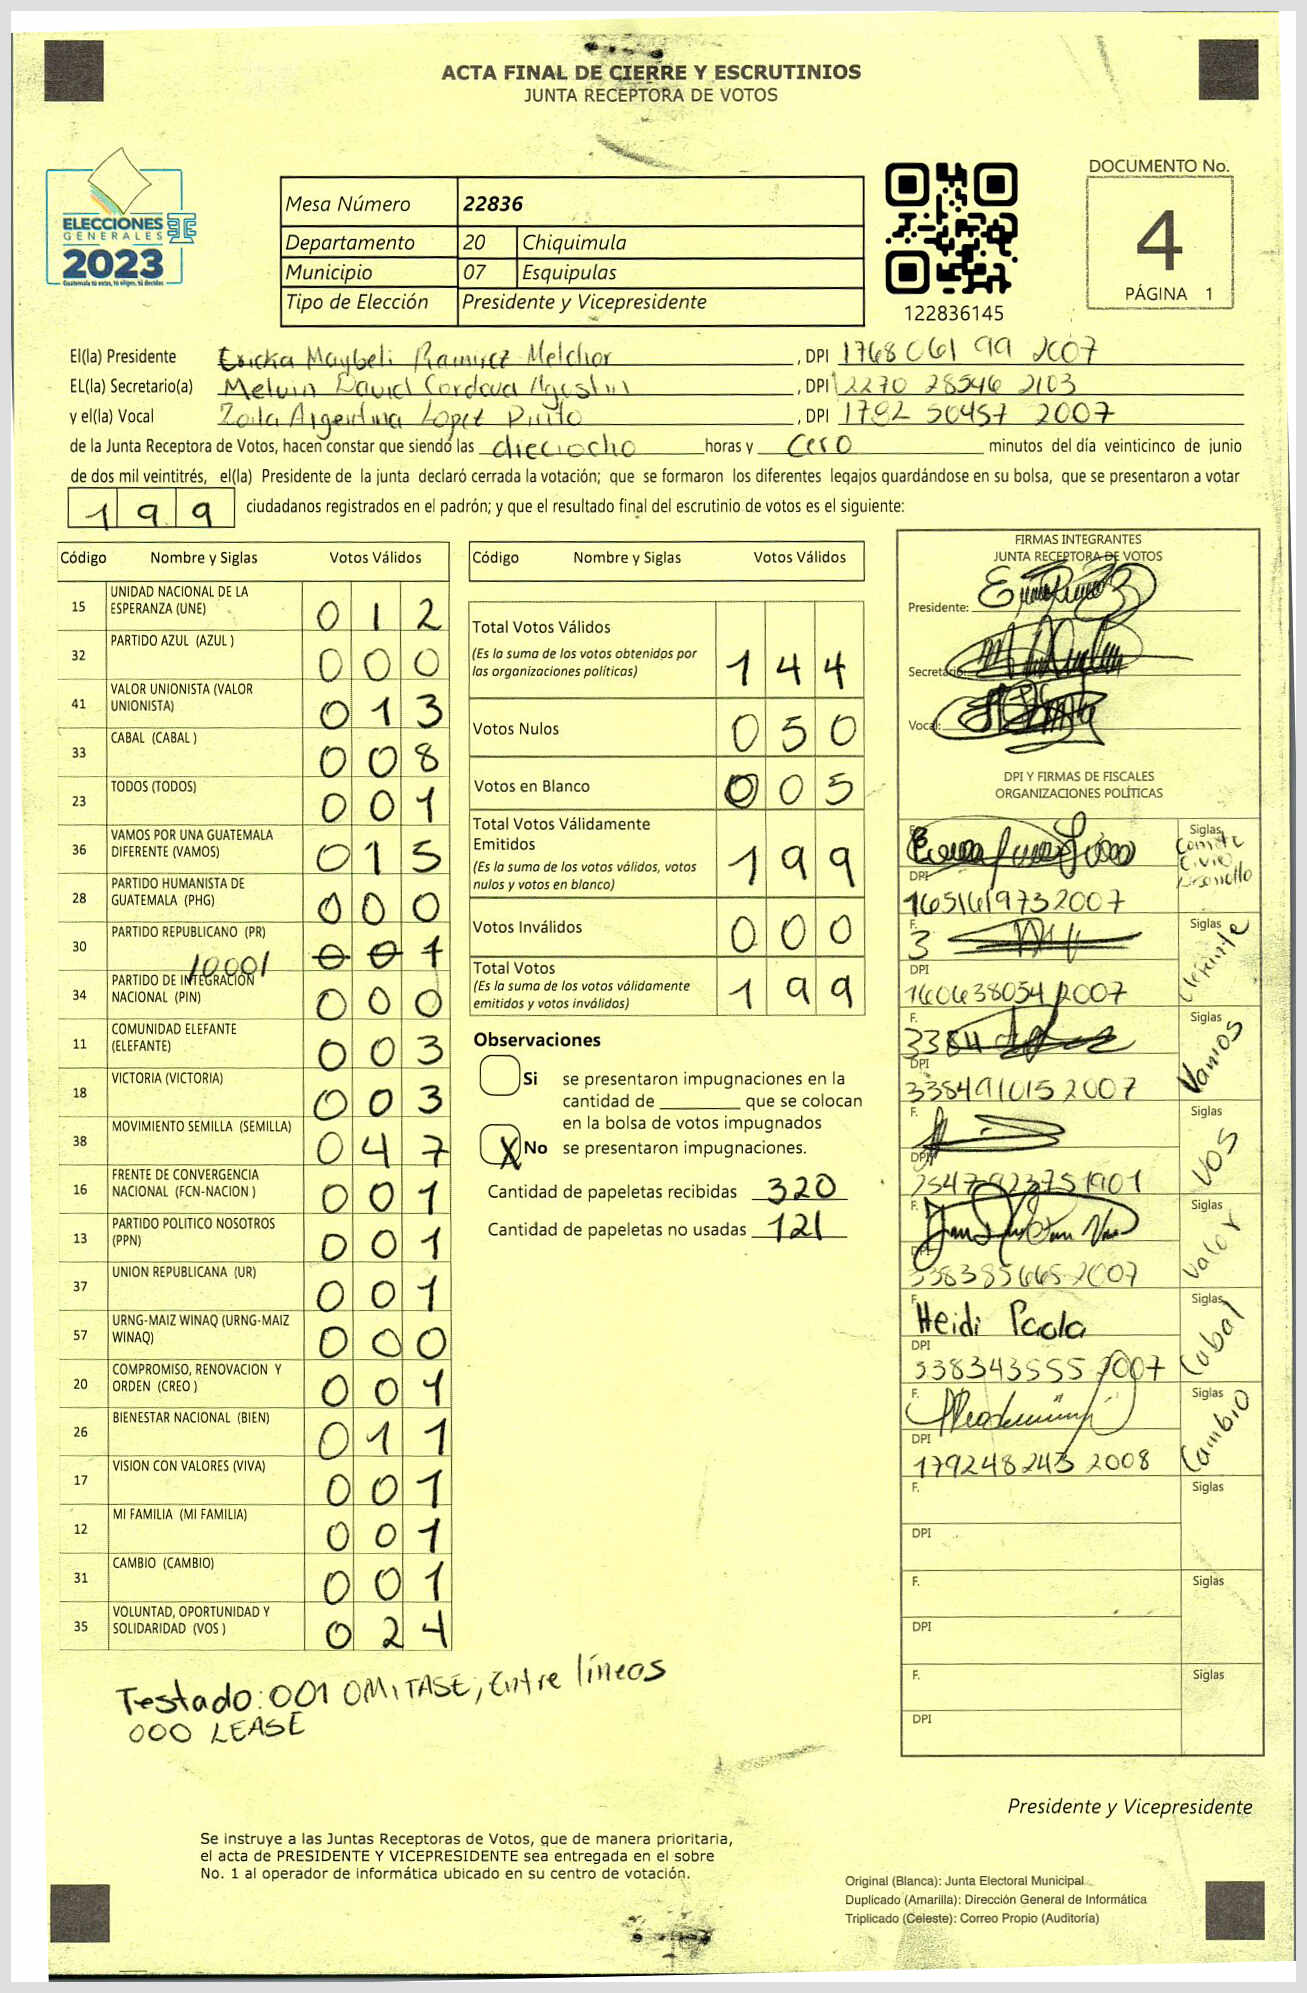 ACTA FINAL DE CIERRE Y ESCRUTINIOS
JUNTA RECEPTORA DE VOTOS
ELECCIONES
GENERALES
2023
Guatemala tú eres, tú eliges, tú decides
Mesa Número 22836
Departamento 20 Chiquimula
Municipio 07 Esquipulas
Tipo de Elección Presidente y Vicepresidente
122836145
DOCUMENTO No.
4
PÁGINA 1
El(la) Presidente Ericka Maybeli Ramirez Melchor, DPI 1768 061 99 2007
EL(la) Secretario(a) Melvin David Cordova Agustin, DPI 2270 28546 2103
y el(la) Vocal Zoila Argentina Lopez Pinto, DPI 1792 50457 2007
de la Junta Receptora de Votos, hacen constar que siendo las dieciocho horas y cero minutos del día veinticinco de junio
de dos mil veintitrés, el(la) Presidente de la junta declaró cerrada la votación; que se formaron los diferentes legajos guardándose en su bolsa, que se presentaron a votar
199 ciudadanos registrados en el padrón; y que el resultado final del escrutinio de votos es el siguiente:
Código Nombre y Siglas Votos Válidos
15 UNIDAD NACIONAL DE LA ESPERANZA (UNE) 012
32 PARTIDO AZUL (AZUL ) 000
41 VALOR UNIONISTA (VALOR UNIONISTA) 013
33 CABAL (CABAL ) 008
23 TODOS (TODOS) 001
36 VAMOS POR UNA GUATEMALA DIFERENTE (VAMOS) 015
28 PARTIDO HUMANISTA DE GUATEMALA (PHG) 000
30 PARTIDO REPUBLICANO (PR) 001
34 PARTIDO DE INTEGRACIÓN NACIONAL (PIN) 000
11 COMUNIDAD ELEFANTE (ELEFANTE) 003
18 VICTORIA (VICTORIA) 003
38 MOVIMIENTO SEMILLA (SEMILLA) 047
16 FRENTE DE CONVERGENCIA NACIONAL (FCN-NACION ) 001
13 PARTIDO POLITICO NOSOTROS (PPN) 001
37 UNION REPUBLICANA (UR) 001
57 URNG-MAIZ WINAQ (URNG-MAIZ WINAQ) 000
20 COMPROMISO, RENOVACION Y ORDEN (CREO ) 001
26 BIENESTAR NACIONAL (BIEN) 011
17 VISION CON VALORES (VIVA) 001
12 MI FAMILIA (MI FAMILIA) 001
31 CAMBIO (CAMBIO) 001
35 VOLUNTAD, OPORTUNIDAD Y SOLIDARIDAD (VOS ) 024
Testado: 001 OMITASE, Entre líneas
000 LEASE
Código Nombre y Siglas Votos Válidos
Total Votos Válidos 144
(Es la suma de los votos obtenidos por
las organizaciones políticas)
Votos Nulos 050
Votos en Blanco 005
Total Votos Válidamente
Emitidos 199
(Es la suma de los votos válidos, votos
nulos y votos en blanco)
Votos Inválidos 000
Total Votos 199
(Es la suma de los votos válidamente
emitidos y votos inválidos)
Observaciones
Si se presentaron impugnaciones en la
cantidad de ________ que se colocan
en la bolsa de votos impugnados
X No se presentaron impugnaciones.
Cantidad de papeletas recibidas 320
Cantidad de papeletas no usadas 121
FIRMAS INTEGRANTES
JUNTA RECEPTORA DE VOTOS
Presidente:
Secretario:
Vocal:
DPI Y FIRMAS DE FISCALES
ORGANIZACIONES POLÍTICAS
F. Siglas Comite Civico Desarrollo
DPI
1651619732007
F. Siglas Elefante
DPI
1606380542007
F. Siglas Vamos
DPI
3384910152007
F. Siglas VOS
DPI
2547923751901
F. Siglas Valor
DPI
3383856652007
F. Siglas Cabal
Heidi Paola
DPI
3383435552007
F. Siglas Cambio
DPI
1792482432008
F. Siglas
DPI
F. Siglas
DPI
F. Siglas
DPI
Presidente y Vicepresidente
Se instruye a las Juntas Receptoras de Votos, que de manera prioritaria,
el acta de PRESIDENTE Y VICEPRESIDENTE sea entregada en el sobre
No. 1 al operador de informática ubicado en su centro de votación.
Original (Blanca): Junta Electoral Municipal
Duplicado (Amarilla): Dirección General de Informática
Triplicado (Celeste): Correo Propio (Auditoría)